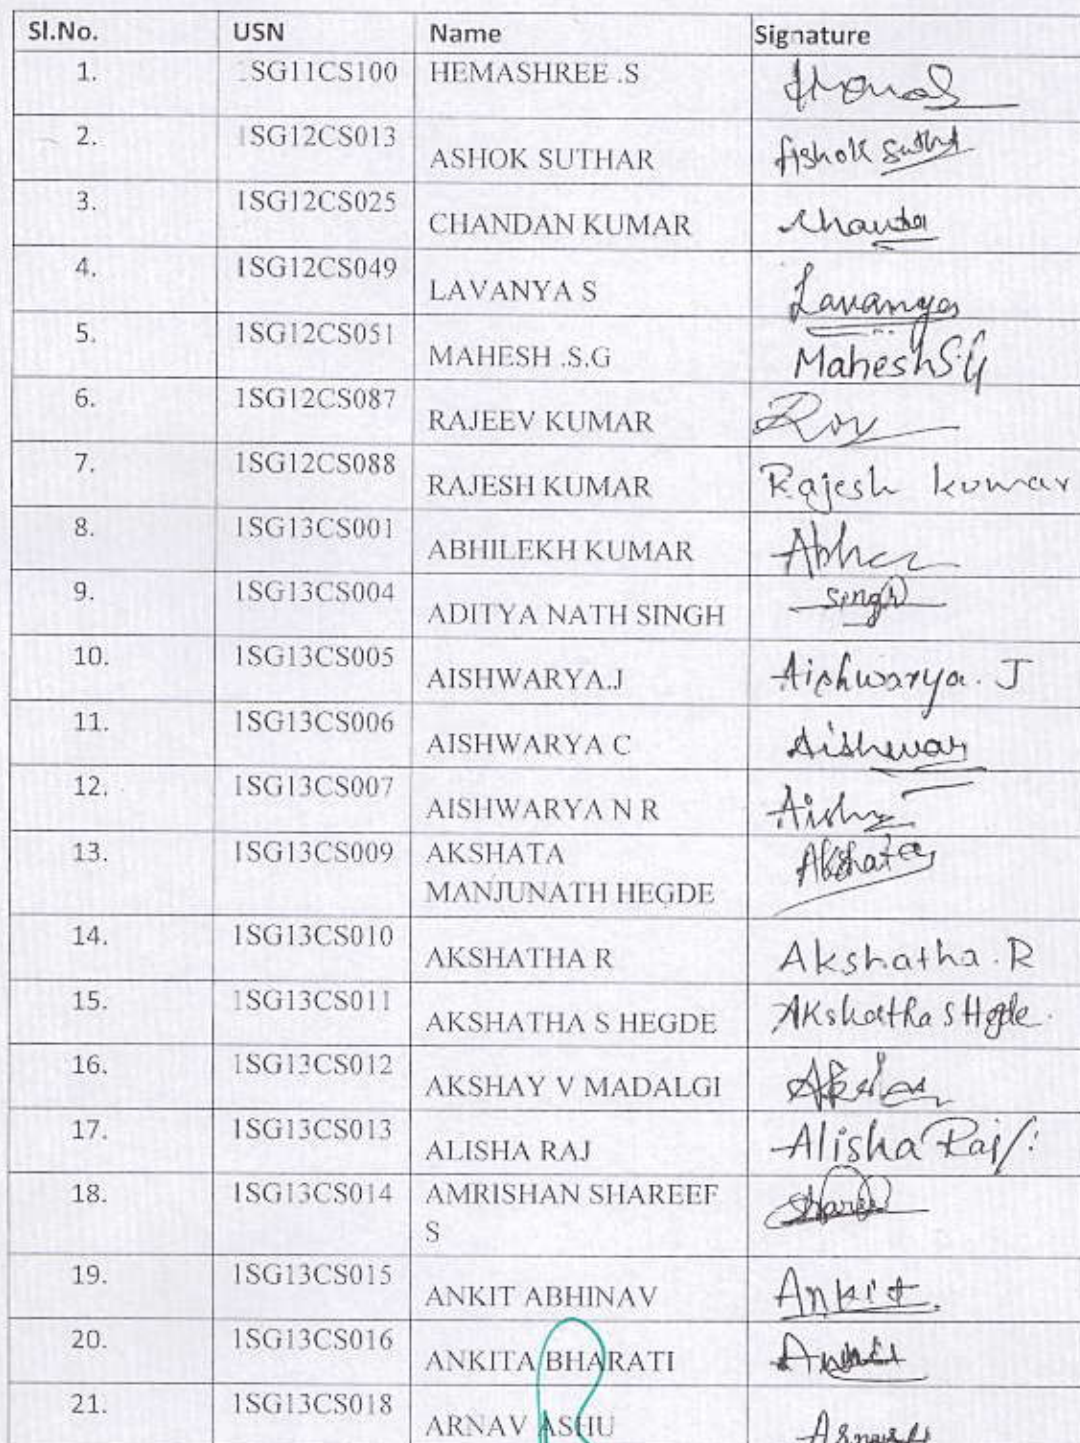 Sl.No. USN Name Signature
1. 1SG11CS100 HEMASHREE .S
2. 1SG12CS013 ASHOK SUTHAR Ashok Suthar
3. 1SG12CS025 CHANDAN KUMAR
4. 1SG12CS049 LAVANYA S Lavanya
5. 1SG12CS051 MAHESH .S.G Mahesh S.G
6. 1SG12CS087 RAJEEV KUMAR
7. 1SG12CS088 RAJESH KUMAR Rajesh kumar
8. 1SG13CS001 ABHILEKH KUMAR
9. 1SG13CS004 ADITYA NATH SINGH Singh
10. 1SG13CS005 AISHWARYA.J Aishwarya. J
11. 1SG13CS006 AISHWARYA C Aishwar
12. 1SG13CS007 AISHWARYA N R
13. 1SG13CS009 AKSHATA
MANJUNATH HEGDE Akshata
14. 1SG13CS010 AKSHATHA R Akshatha.R
15. 1SG13CS011 AKSHATHA S HEGDE Akshatha S Hegde.
16. 1SG13CS012 AKSHAY V MADALGI
17. 1SG13CS013 ALISHA RAJ Alisha Raj
18. 1SG13CS014 AMRISHAN SHAREEF
S
19. 1SG13CS015 ANKIT ABHINAV Ankit.
20. 1SG13CS016 ANKITA BHARATI
21. 1SG13CS018 ARNAV ASHU